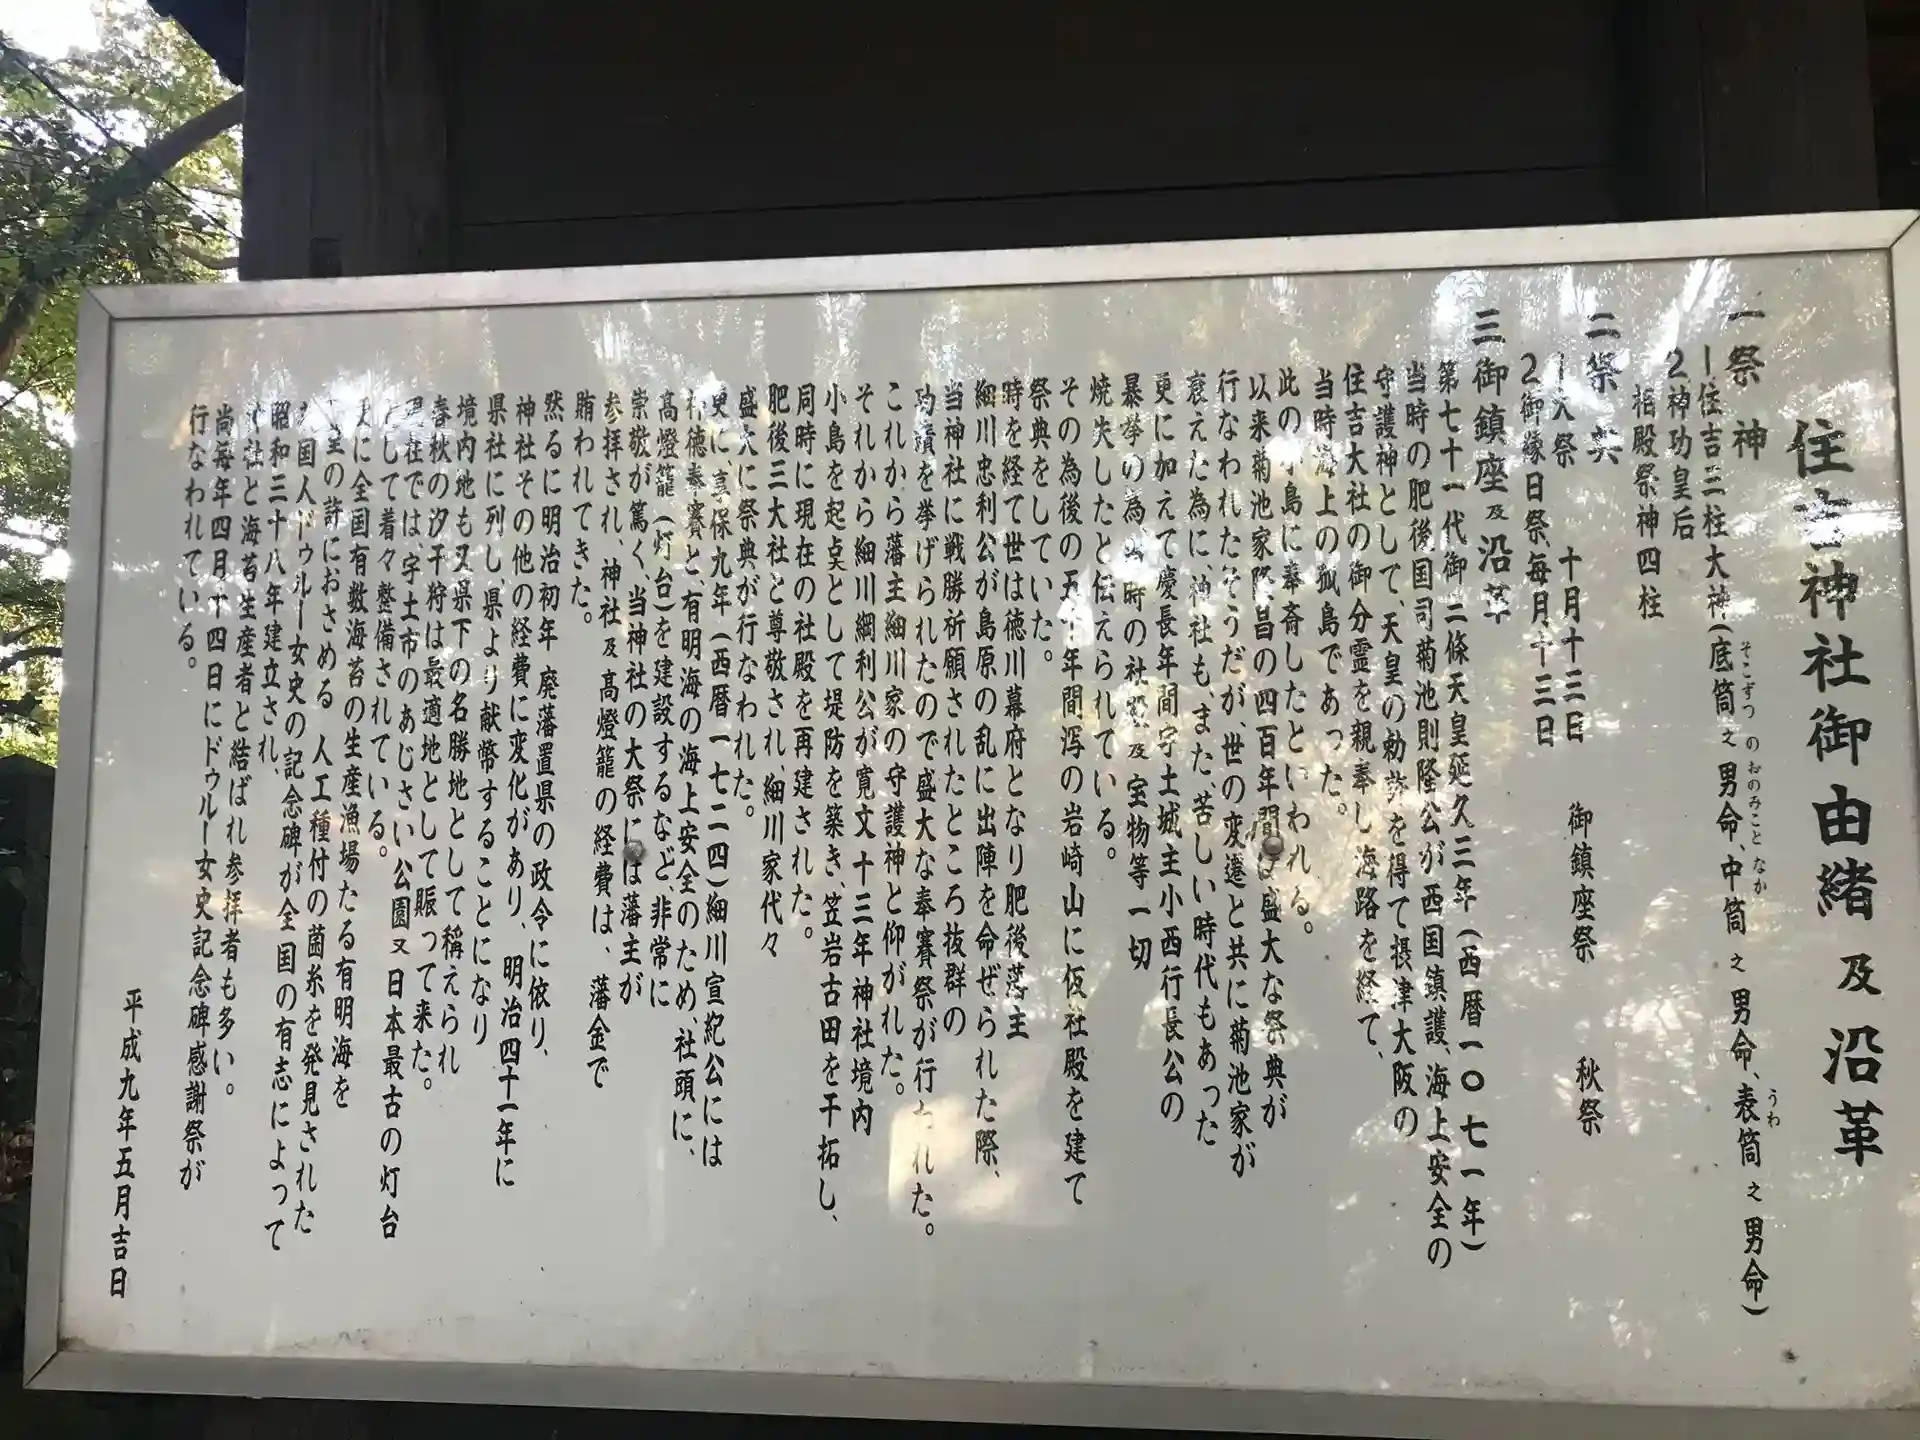 住吉神社御由緒及沿革
一 祭神
1 住吉三柱大神(底筒之男命、中筒之男命、表筒之男命)
そこずつ のおのみこと なか うわ
2 神功皇后
相殿祭神四柱
二 祭典
1 大祭 十月十三日 御鎮座祭 秋祭
2 御縁日祭 毎月十三日
三 御鎮座及沿革
第七十一代御二條天皇延久三年(西暦一〇七一年)
当時の肥後国司菊池則隆公が西国鎮護、海上安全の
守護神として、天皇の勅許を得て摂津大阪の
住吉大社の御分霊を親奉し海路を経て、
当時海上の孤島であった。
此の小島に奉斎したといわれる。
以来菊池家隆昌の四百年間は盛大な祭典が
行なわれたそうだが、世の変遷と共に菊池家が
衰えた為に、神社も、また、苦しい時代もあった
更に加えて慶長年間宇土城主小西行長公の
暴挙の為 時の社殿及宝物等一切
焼失したと伝えられている。
その為後の五十年間浮の岩崎山に仮社殿を建て
祭典をしていた。
時を経て世は徳川幕府となり肥後藩主
細川忠利公が島原の乱に出陣を命ぜられた際、
当神社に戦勝祈願されたところ抜群の
功績を挙げられたので盛大な奉賽祭が行われた。
これから藩主細川家の守護神と仰がれた。
それから細川綱利公が寛文十三年神社境内
小島を起点として堤防を築き、笠岩古田を干拓し、
同時に現在の社殿を再建された。
肥後三大社と尊敬され、細川家代々
盛大に祭典が行なわれた。
更に、享保九年(西暦一七二四)細川宣紀公には
神徳奉賽と、有明海の海上安全のため、社頭に、
高燈籠(灯台)を建設するなど、非常に
崇敬が篤く、当神社の大祭には藩主が
参拝され、神社及高燈籠の経費は、藩金で
賄われてきた。
然るに明治初年 廃藩置県の政令に依り、
神社その他の経費に変化があり、明治四十一年に
県社に列し、県より献幣することになり
境内地も又県下の名勝地として称えられ
春秋の汐干狩は最適地として賑って来た。
現在では宇土市のあじさい公園又日本最古の灯台
として着々整備されている。
に全国有数海苔の生産漁場たる有明海を
望の許におさめる 人工種付の菌糸を発見された
国人ドゥルー女史の記念碑が全国の有志によって
昭和三十八年建立され、
社と海苔生産者と結ばれ参拝者も多い。
尚毎年四月十四日にドゥルー女史記念碑感謝祭が
行なわれている。
平成九年五月吉日